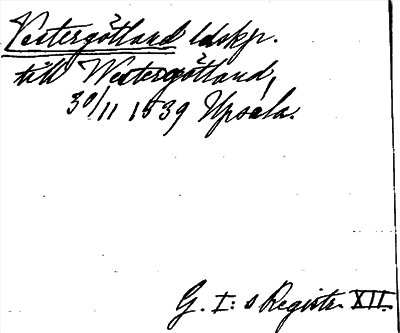 Vestergötland ldskp.
till Westergötland,
30/11 1539 Upsala.
G. I:s Registr. XII.